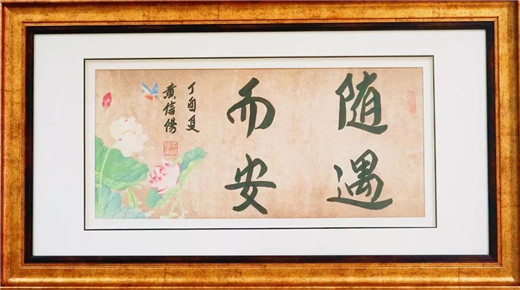 随遇
而安
丁酉夏
黄信阳